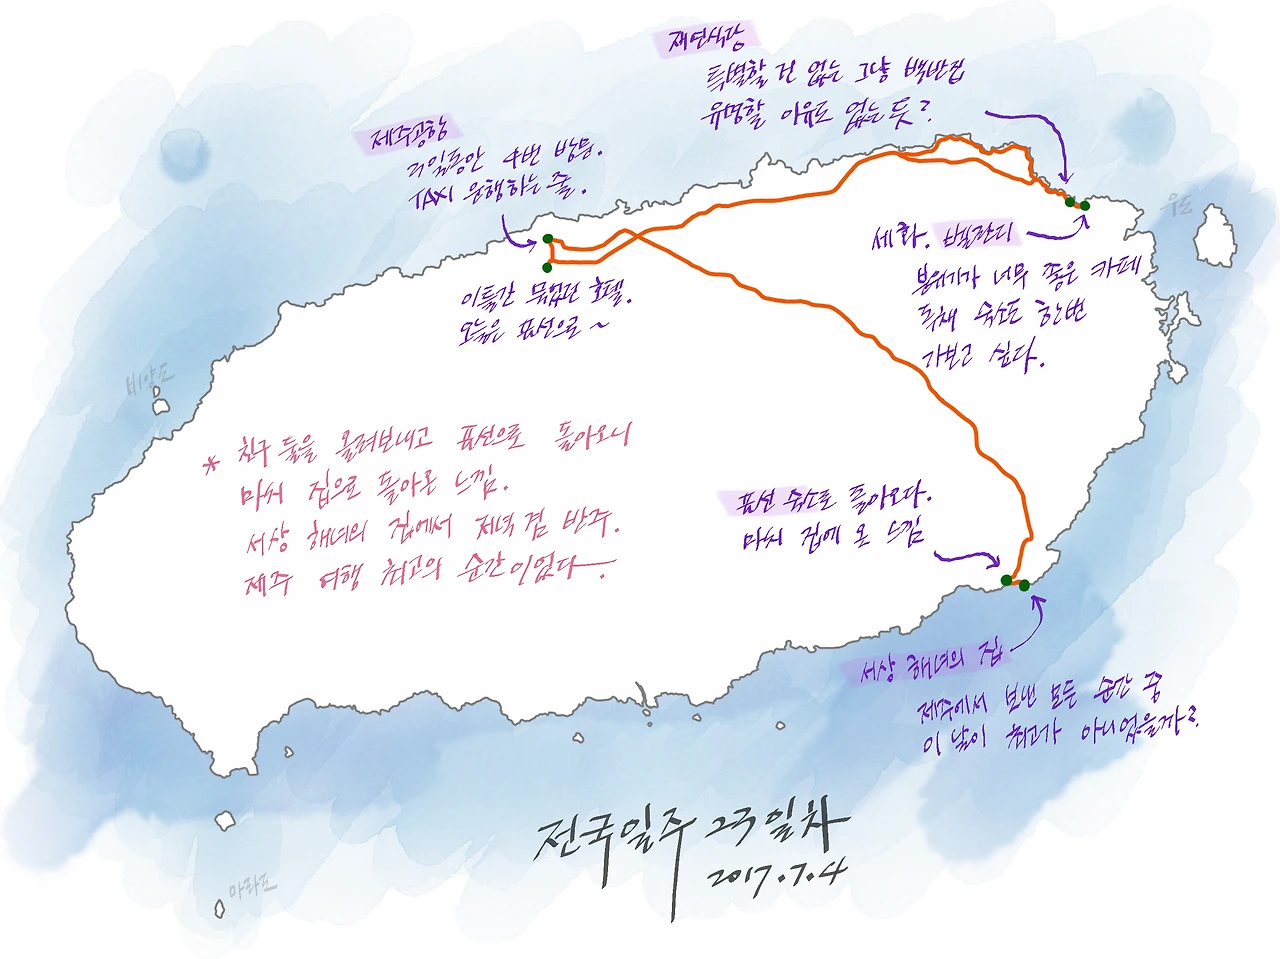 재연식당
특별할 건 없는 그냥 백반집
유명할 이유도 없는 듯?
제주공항
2일동안 4번 방문.
TAXI 운행하는 줄.
우도
세화. 벨잔디
분위기가 너무 좋은 카페
독채 숙소도 한번
가보고 싶다.
이틀간 묵었던 호텔.
오늘은 표선으로 ~
비양도
* 친구 둘을 올려보내고 표선으로 돌아오니
마치 집으로 돌아온 느낌.
세상 해녀의 집에서 저녁 겸 반주.
제주 여행 최고의 순간이었다.
표선 숙소로 돌아오다.
마치 집에 온 느낌
세상 해녀의 집
제주에서 보낸 모든 순간 중
이 날이 최고가 아니었을까?
전국일주 23일차
2017.7.4
마라도